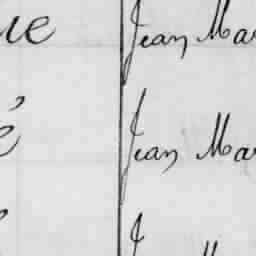 ue Jean Mar
é Jean Mar